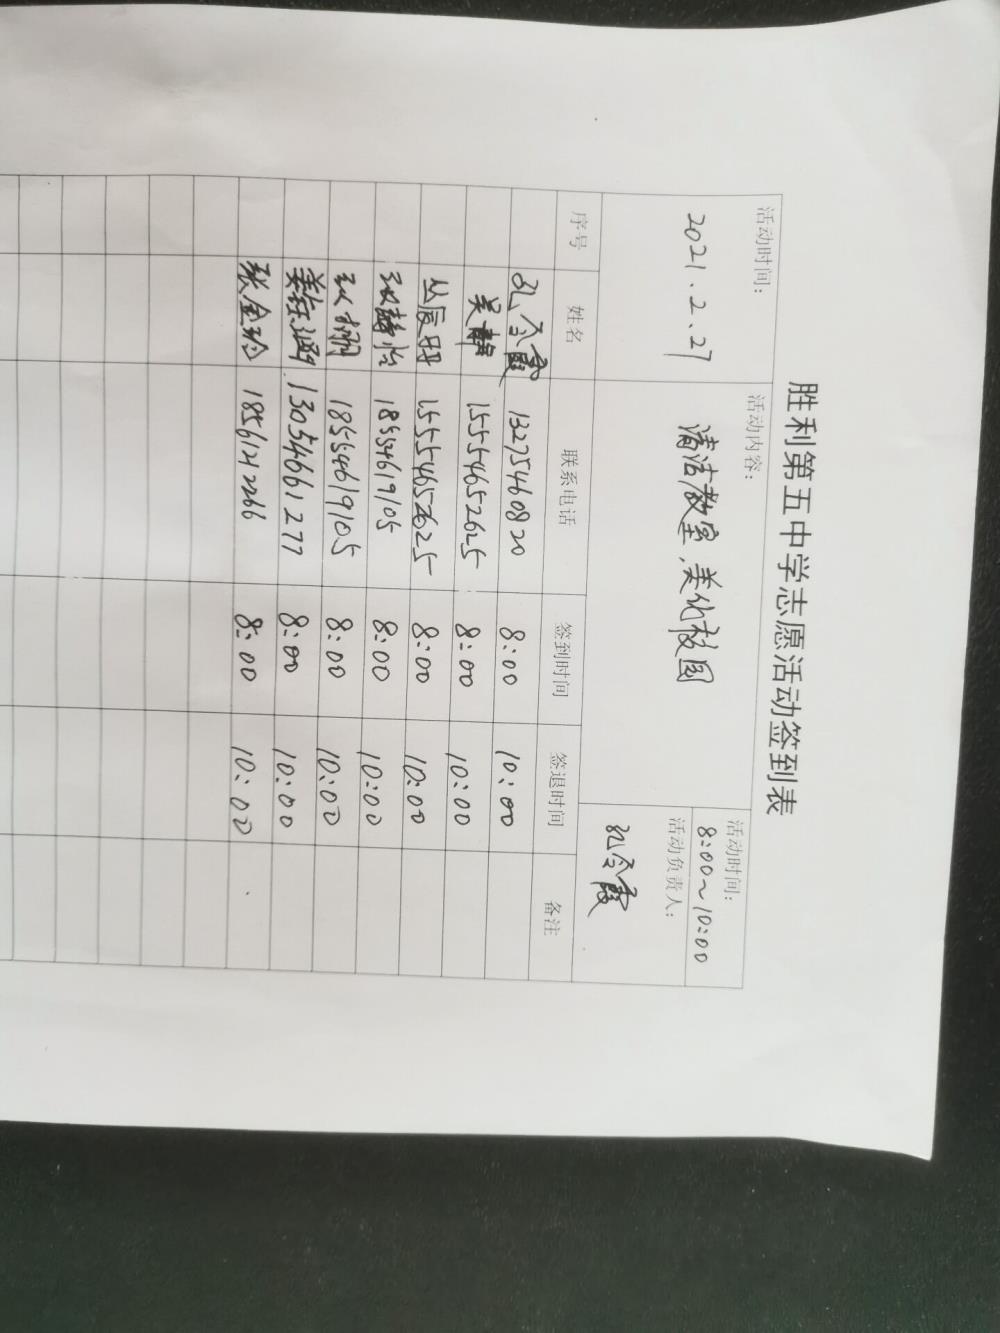 胜利第五中学志愿活动签到表
活动时间: 活动内容: 活动时间:
2021.2.27 清洁教室,美化校园 8:00~10:00
活动负责人:
孔令霞
序号 姓名 联系电话 签到时间 签退时间 备注
孔令霞 13275460820 8:00 10:00
吴静 15554652625 8:00 10:00
丛辰玥 15554652625 8:00 10:00
18554619105 8:00 10:00
18554619105 8:00 10:00
13054661277 8:00 10:00
张金玲 18561212266 8:00 10:00